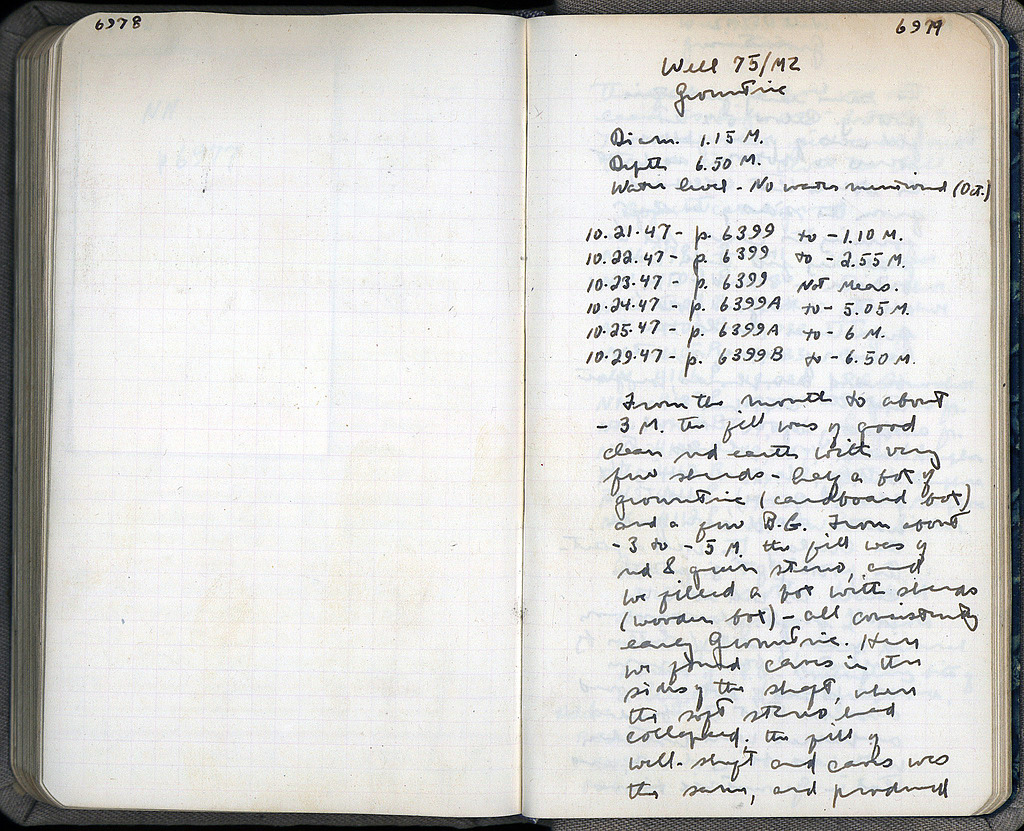 6978
6979
Well 75/M2
Geometric
Diam. 1.15 M.
Depth 6.50 M.
Water level - No water mentioned (Oct.)
10.21.47 - p. 6399 to - 1.10 M.
10.22.47 - p. 6399 to - 2.55 M.
10.23.47 - p. 6399 Not Meas.
10.24.47 - p. 6399A to - 5.05 M.
10.25.47 - p. 6399A to - 6 M.
10.29.47 - p. 6399B to - 6.50 M.
From the mouth to about
- 3 M. the fill was of good
clean red earth with very
few sherds - half a box of
geometric (cardboard box)
and a few B.G. From about
- 3 to - 5 M. the fill was of
red & green stereo, and
we filled a box with sherds
(wooden box) - all consistently
early Geometric. Here
we found caves in the
sides of the shaft, where
the soft stereo had
collapsed; the fill of
well-shaft and caves was
the same, and produced